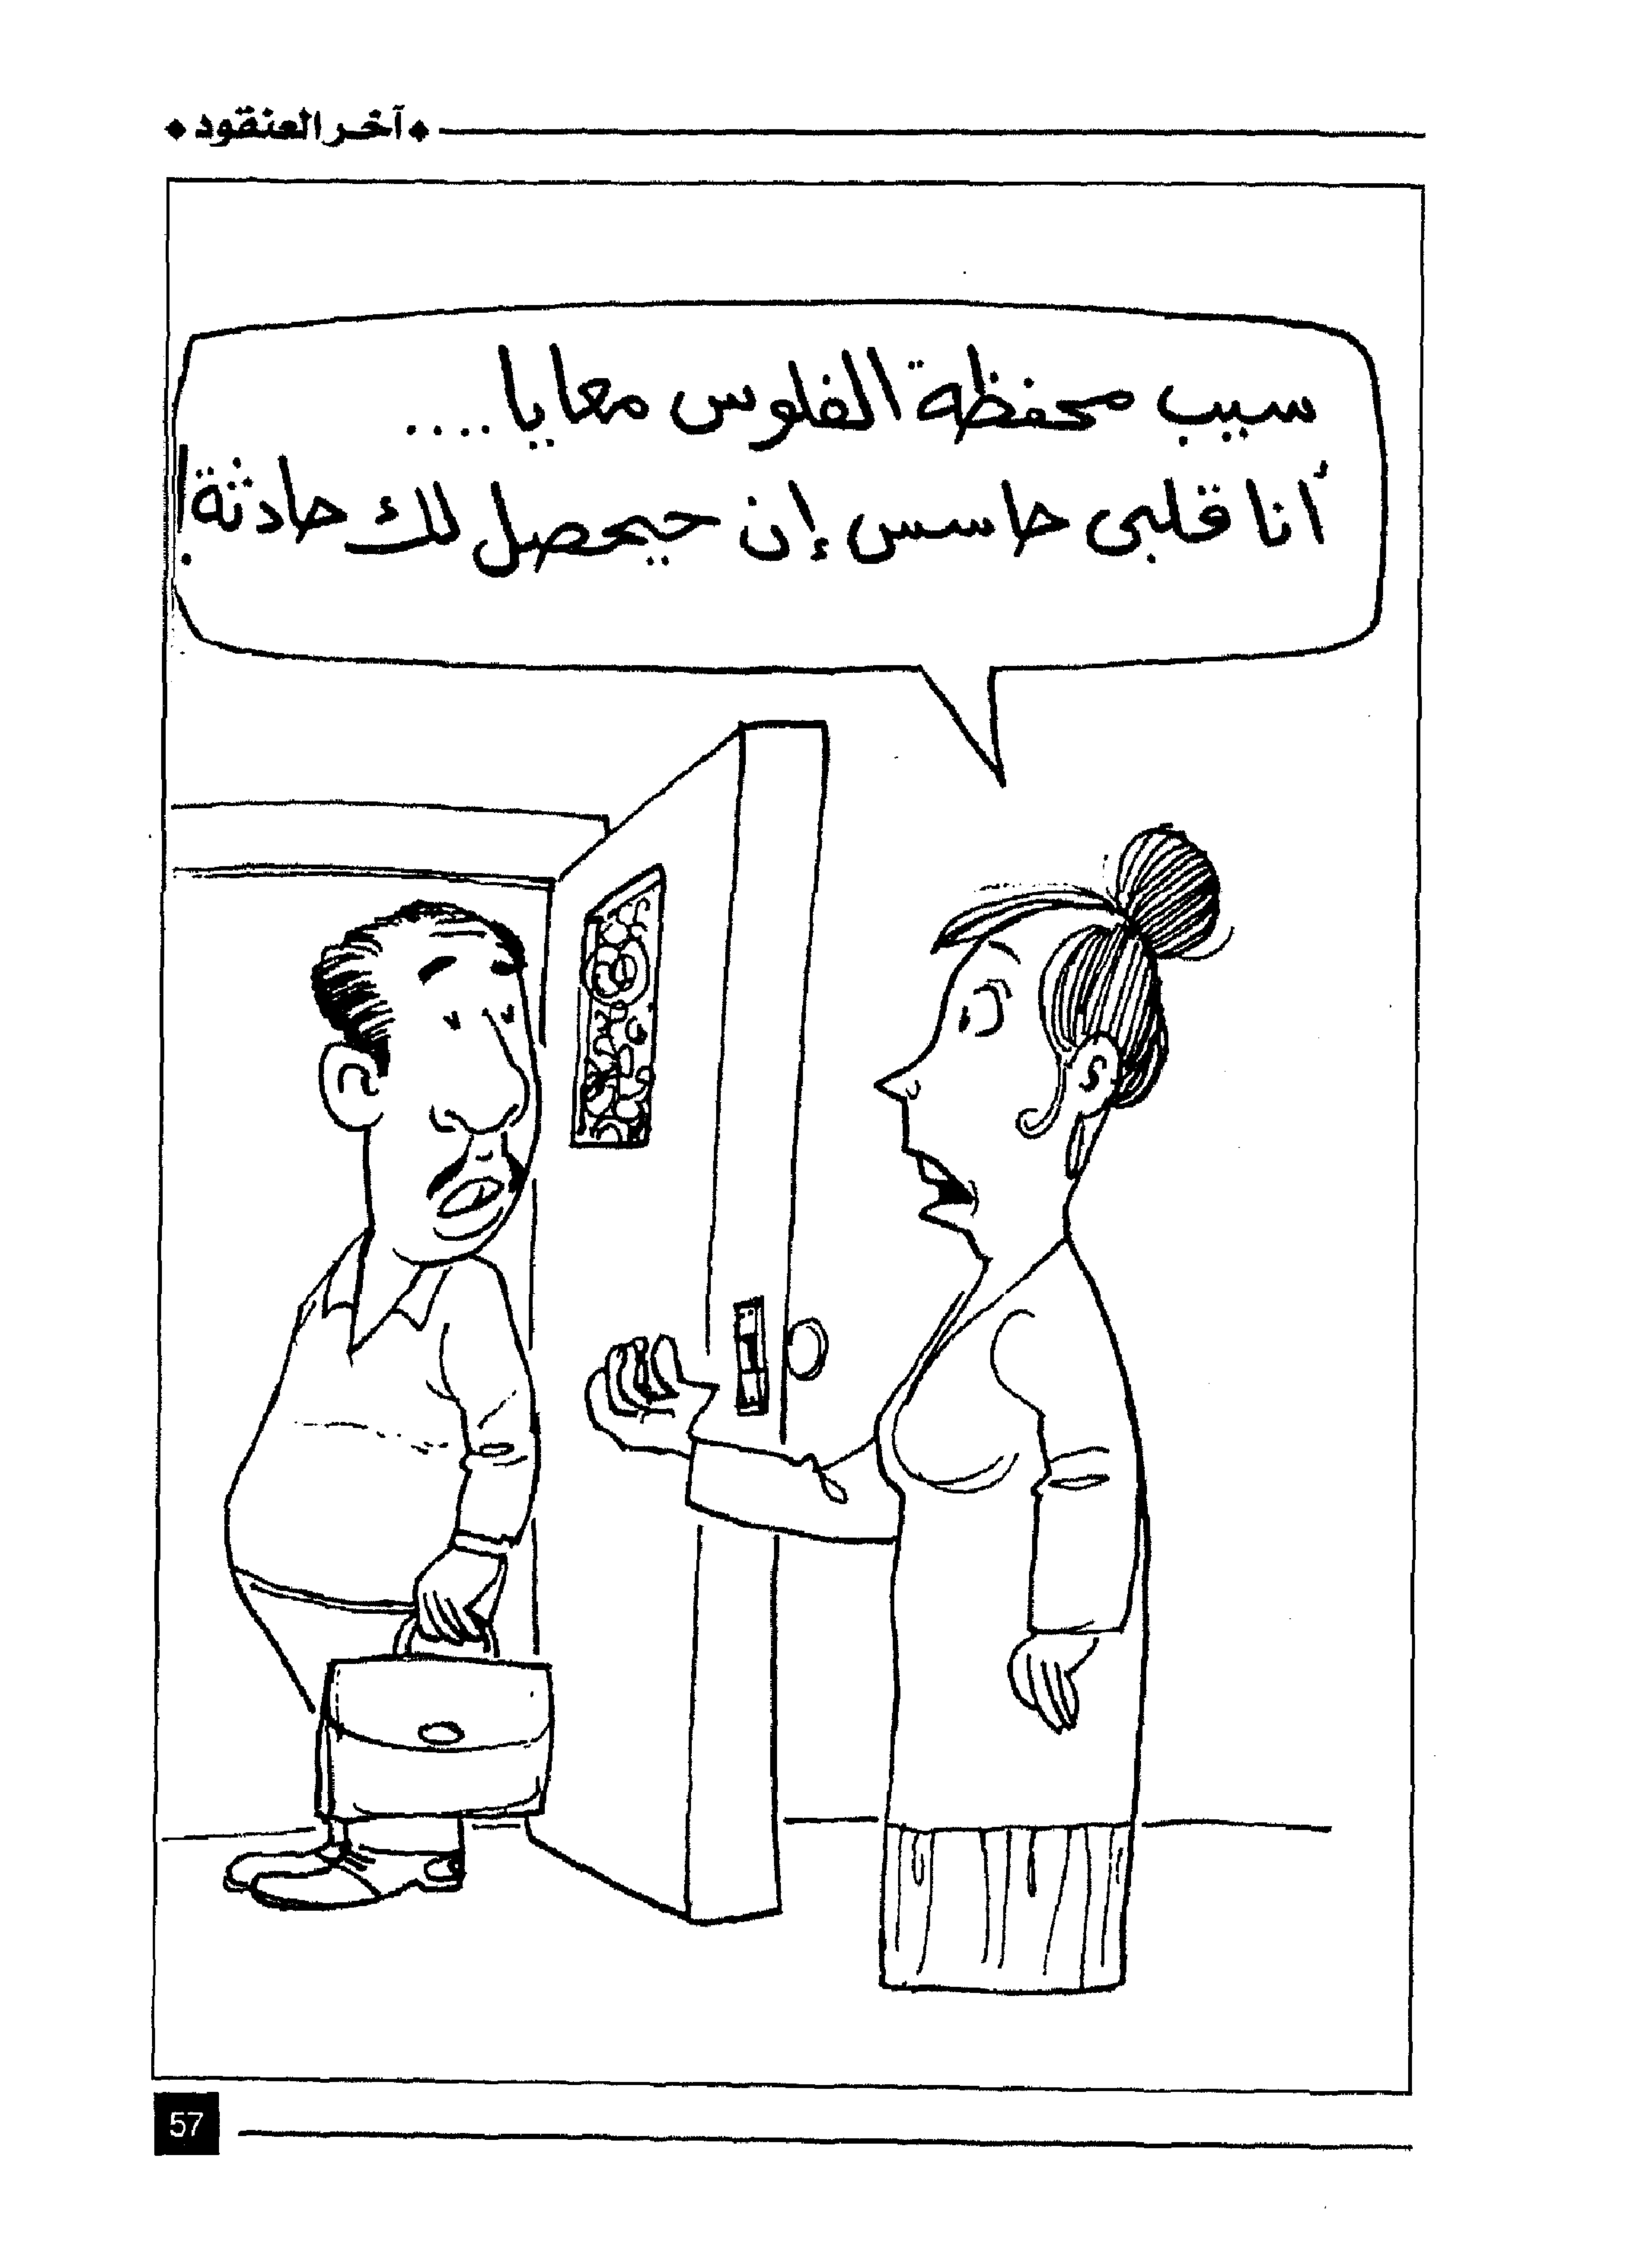 آخر العنقود
سيب محفظة الفلوس معايا....
أنا قلبى حاسس إن حيحصل لك حادثة!
57